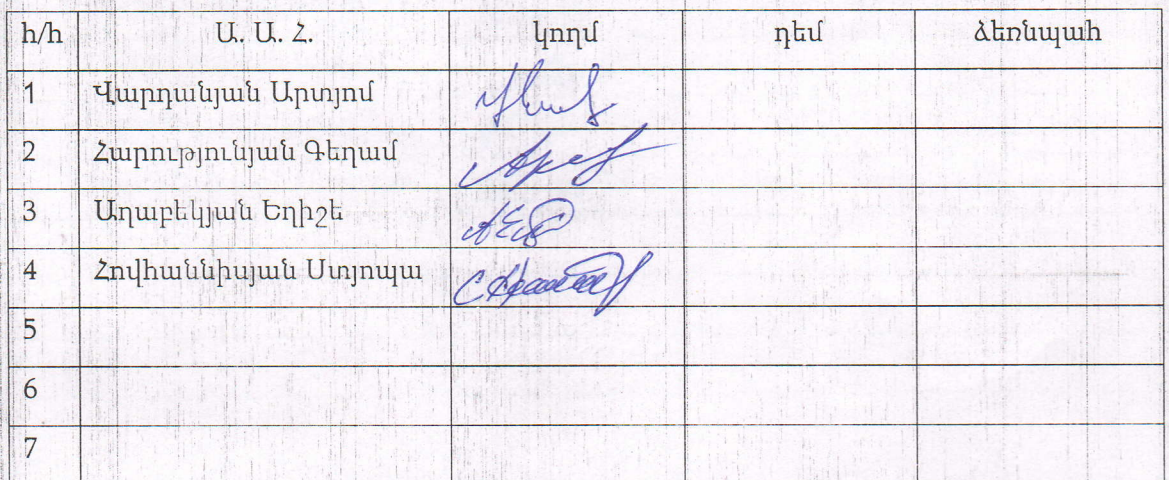 հ/հ Ա. Ա. Հ. կողմ դեմ ձեռնպահ
1 Վարդանյան Արտյոմ
2 Հարությունյան Գեղամ
3 Աղաբեկյան Եղիշե
4 Հովհաննիսյան Ստյոպա
5
6
7